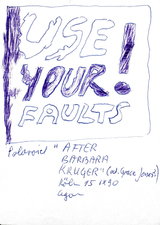 USE
YOUR!
FAULTS
Polaroid "AFTER
BARBARA
KRUGER" (w. Grace Jones)
Köln 15 1990